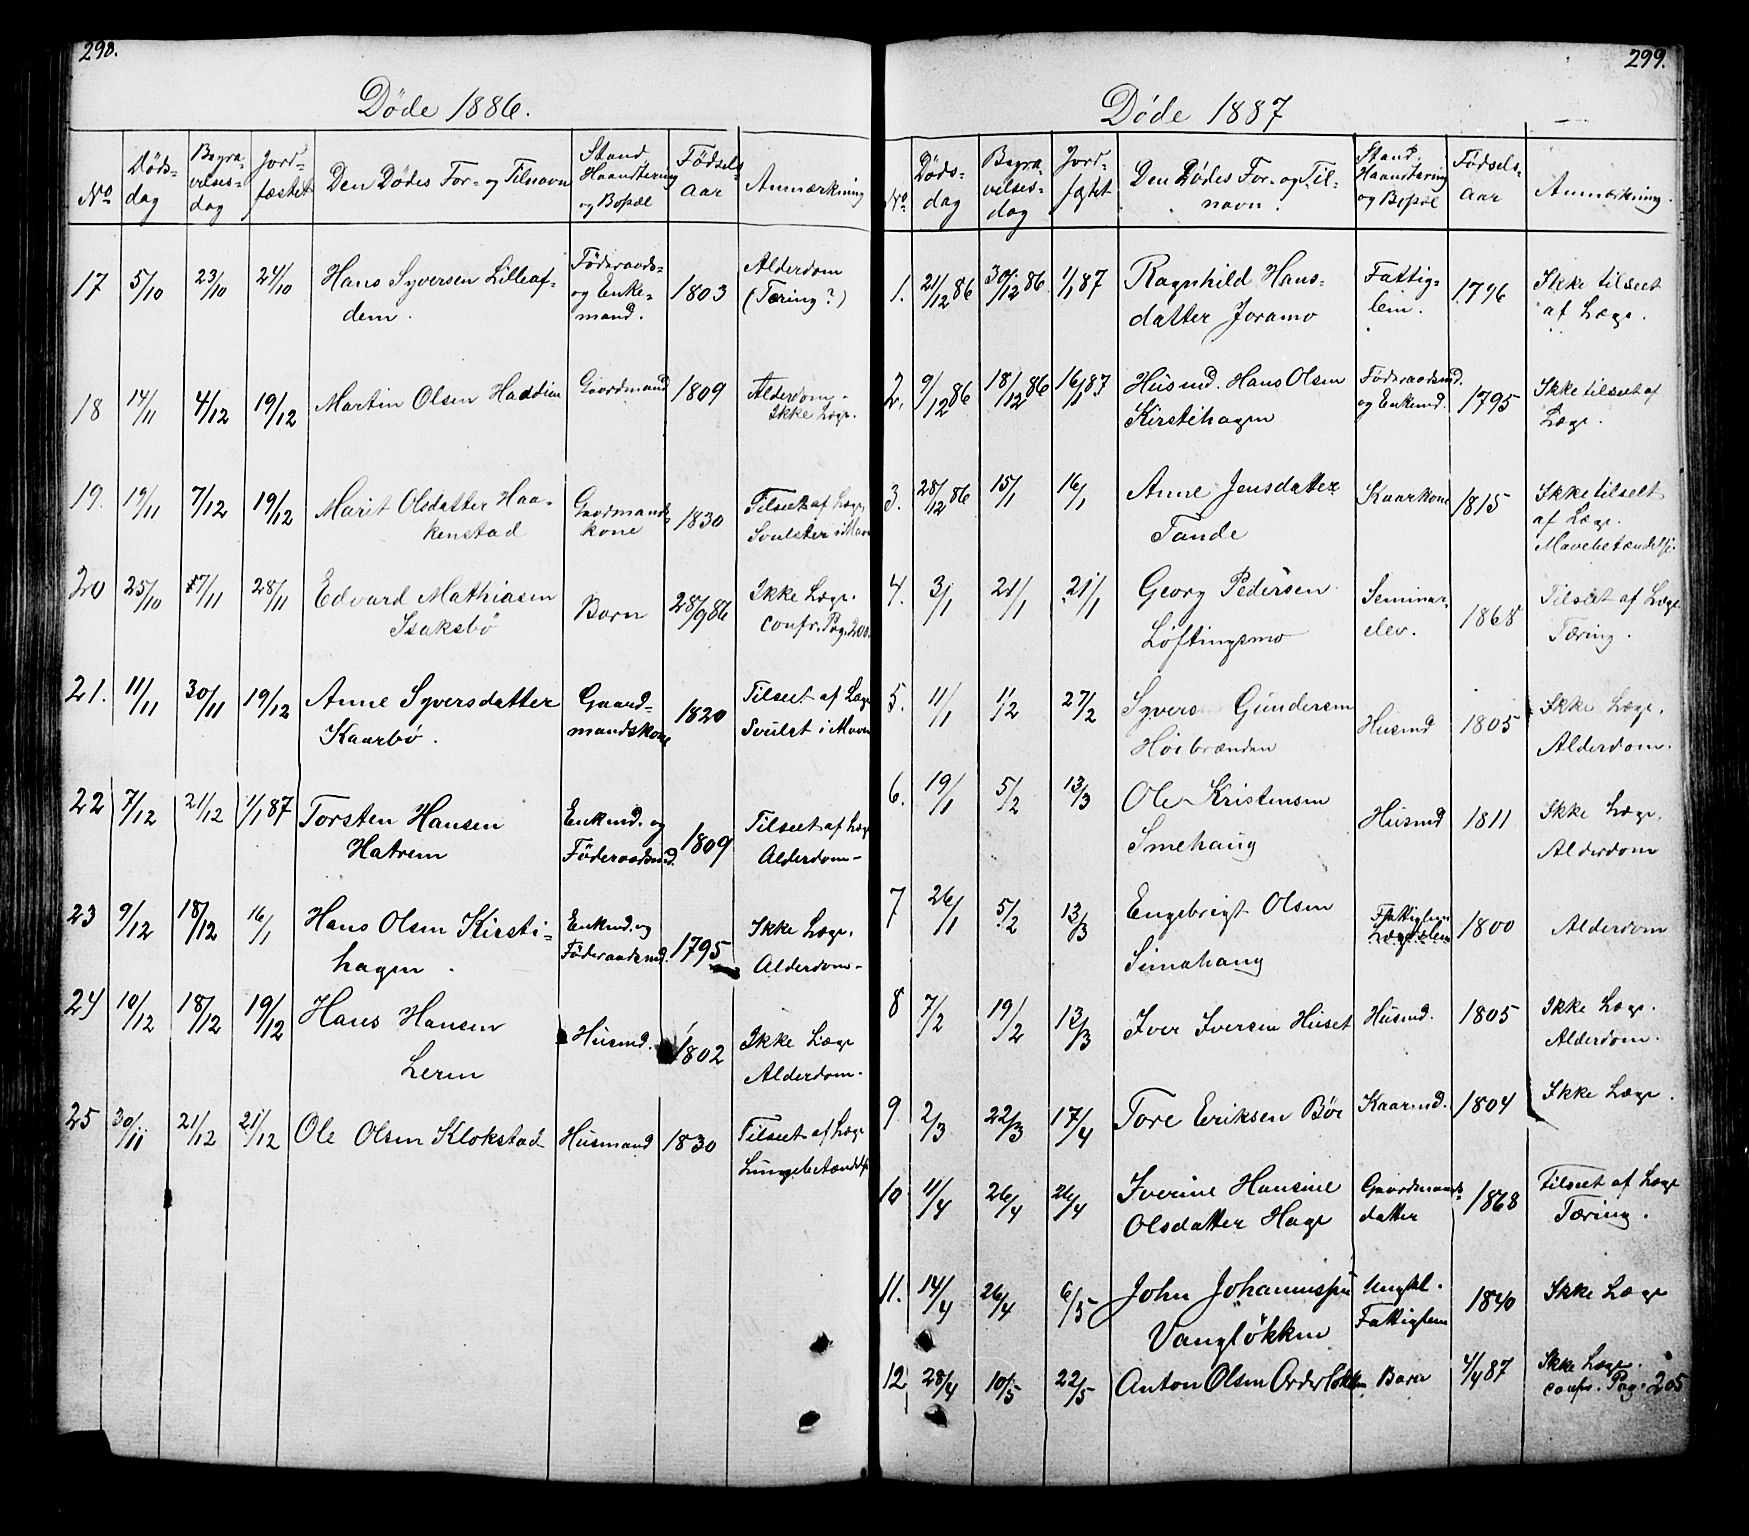 298.
Døde 1886.
No
Døds-
dag
Begra-
velses-
dag
Jord-
fæstet
Den Dødes For- og Tilnavn
Stand
Haandtering
og Bopæl
Fødsels-
aar
Anmærkning
17 5/10 23/10 24/10 Hans Syversen Lilleaf-
dem.
Føderaads-
og Enke-
mand.
1803
Alderdom
(Tæring?)
18 14/11 4/12 19/12 Martin Olsen Haddien
Gaardmand 1809
Alderdom-
Ikke Læge.
19. 19/11 7/12 19/12 Marit Olsdatter Haa-
kenstad
Gaardmands-
kone
1830
Tilseet af Læge
Svulster i Mave
20 25/10 17/11 28/11 Edvard Mathiasen
Isaksbø
Barn 28/9 86
Ikke Læge.
confr. Pag. 200.
21. 11/11 30/11 19/12 Anne Syversdatter
Kaarbø.
Gaard-
mandskone
1820
Tilseet af Læge
Svulst i Maven
22 7/12 21/12 1/1 87 Torsten Hansen
Hatrem
Enkmd. og
Føderaadsmd.
1809
Tilseet af Læge
Alderdom-
23 9/12 18/12 16/1 Hans Olsen Kirsti-
hagen.
Enkmd. og
Føderaadsmd.
1795
Ikke Læge.
Alderdom-
24 10/12 18/12 19/12 Hans Hansen
Lerm
Husmd. 1802
Ikke Læge
Alderdom.
25 30/11 21/12 21/12 Ole Olsen Klokstad
Husmand 1830
Tilseet af Læge
Lungebetændelse
299.
Døde 1887
No.
Døds-
dag
Begra-
velses-
dag
Jord-
fæstet
Den Dødes For- og Til-
navn.
Stand,
Haandtering
og Bopæl
Fødsels-
aar
Anmærkning.
1. 21/12 86 30/12 86 1/1 87 Ragnhild Hans-
datter Joramo
Fattig-
lem.
1796
Ikke tilseet
af Læge.
2. 9/12 86 18/12 86 16/1 87 Husmd. Hans Olsen
Kirstihagen
Føderaadsmd.
og Enkemd.
1795
Ikke tilseet af
Læge.
3. 28/12 86 15/1 16/1 Anne Jensdatter
Tande
Kaarkone 1815
Ikke tilseet
af Læge.
Mavebetændelse.
4. 3/1 21/1 21/1 Georg Pedersen
Løftingsmo
Seminar-
elev.
1868
Tilseet af Læge
Tæring.
5. 11/1 1/2 27/2 Syver Gundersen
Høibrænden
Husmd 1805
Ikke Læge.
Alderdom.
6. 19/1 5/2 13/3 Ole Kristensen
Smehaug
Husmd 1811
Ikke Læge.
Alderdom
7 26/1 5/2 13/3 Engebrigt Olsen
Simahaug
Fattiglem
Lægdslem
1800
Alderdom
8 7/2 19/2 13/3 Iver Iversen Huset
Husmd. 1805
Ikke Læge.
Alderdom.
9. 2/3 22/3 17/4 Tore Eriksen Bøe
Kaarmd. 1804
Ikke Læge.
10 11/4 26/4 26/4 Iverine Hansine
Olsdatter Hage
Gaardmands-
datter
1868
Tilseet af Læge
Tæring.
11. 14/4 26/4 6/5 John Johannessen
Vangløkken
Ungkl.
Fattiglem
1840
Ikke Læge
12 28/4 10/5 22/5 Anton Olsen Orderløkken
Barn 4/4 87
Ikke Læge.
confr. Pag. 205